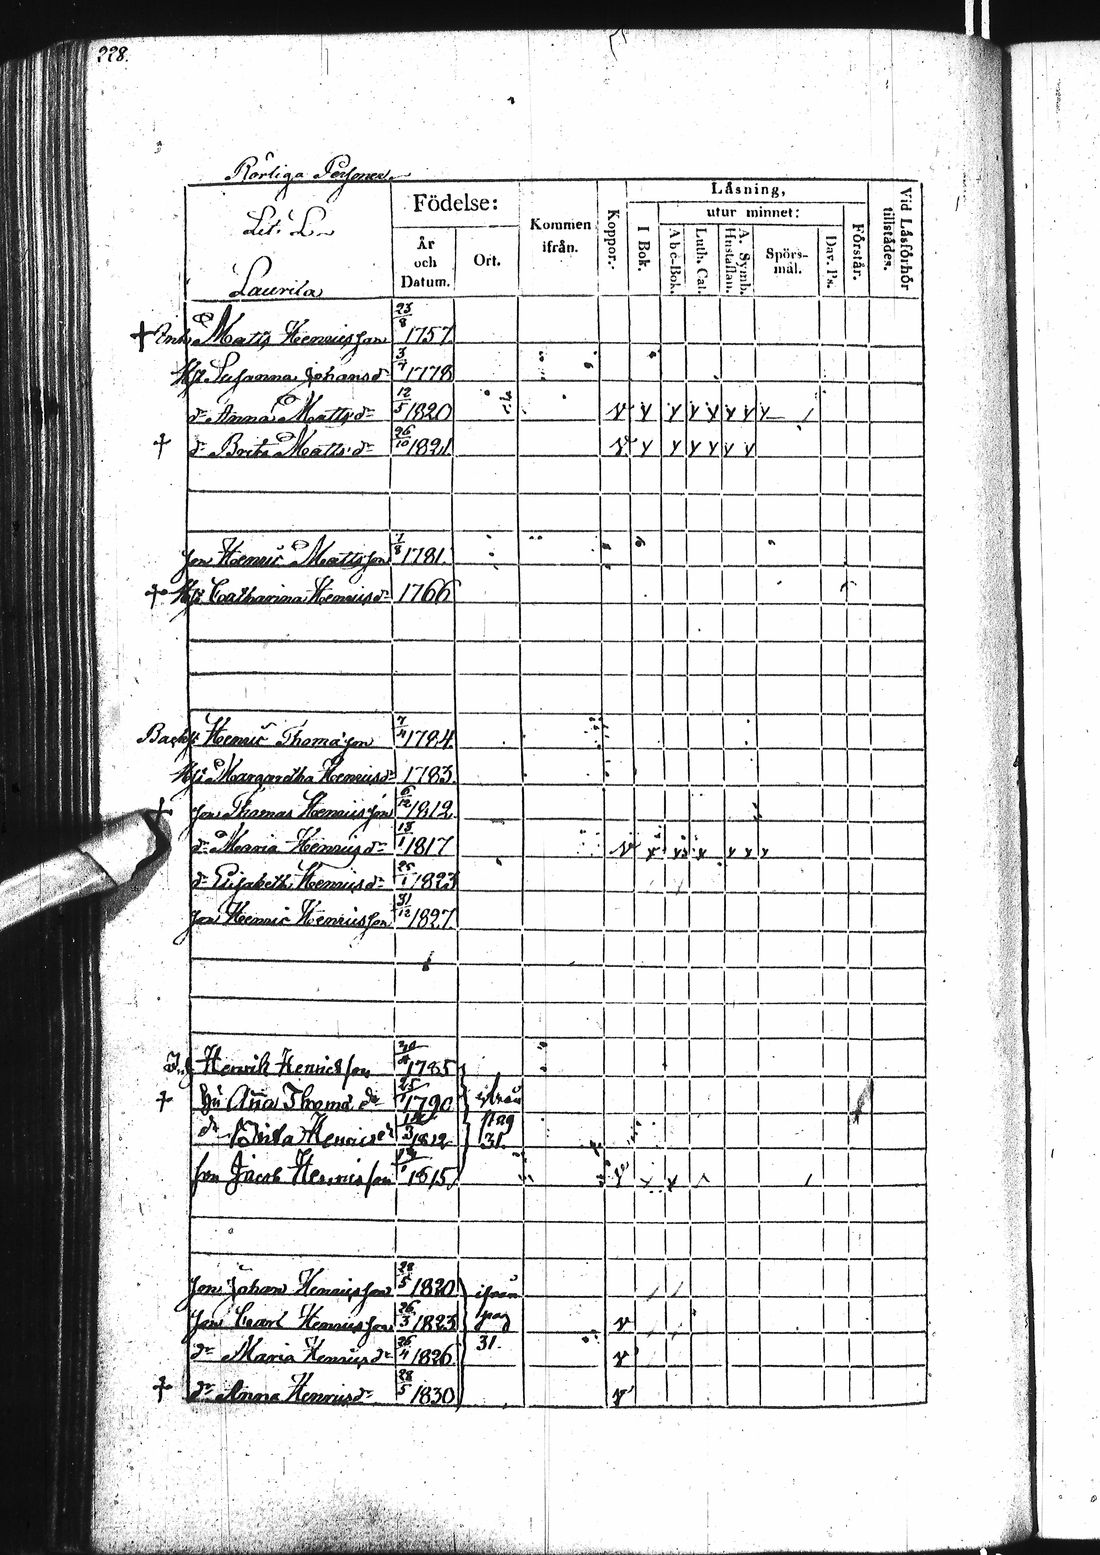 228.
Rörliga Personer
Lit. L.
Laurila
Födelse:
År och Datum.
Ort.
Kommen ifrån.
Koppor.
Läsning,
I Bok.
utur minnet:
Abc-Bok.
Luth. Cat.
A. Symb. Hustaflan.
Spörsmål.
Dav. Ps.
Förstår.
Vid Läsförhör tillstädes.
† Enk. Matts Henricsson 23/8 1757.
Hu Susanna Johansdr 3/7 1778
dr Anna Mattsdr 12/5 1820 v y y y y y y y
† dr Brita Mattsdr 26/10 1821 v y y y y y y
son Henric Mattsson 1/8 1781.
† Hu Catharina Henricsdr 1766
Henric Thomasson 7/4 1784.
Hu Margaretha Henricsdr 1783
† son Thomas Henricsson 6/12 1812
dr Maria Henricsdr 13/1 1817
dr Elisabeth Henricsdr 25/1 1823
son Henric Henricsson 31/12 1827.
Henrik Henricsson 1785
† Hu Anna Thomædr 25/1 1790 ifrån
dr Brita Henricsdr 1812 pag
son Jacob Henricsson 1815 31.
son Johan Henricsson 22/5 1820 ifrån
son Carl Henricsson 26/3 1823 pag v
dr Maria Henricsdr 26/4 1826 31. v
† dr Anna Henricsdr 28/5 1830 v